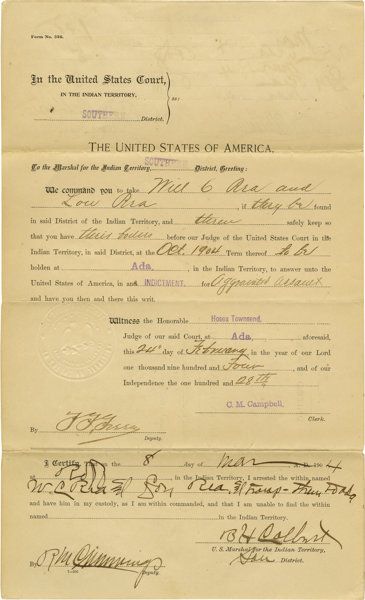 Form No. 586.
In the United States Court,
IN THE INDIAN TERRITORY,
ss:
SOUTHERN District.
THE UNITED STATES OF AMERICA,
To the Marshal for the Indian Territory, SOUTHERN District, Greeting:
We command you to take Will C Rea and
Lou Rea if they be found
in said District of the Indian Territory, and them safely keep so
that you have their bodies before our Judge of the United States Court in the
Indian Territory, in said District, at the Oct. 1904 Term thereof to be
holden at Ada, in the Indian Territory, to answer unto the
United States of America, in an INDICTMENT. for Aggravated Assault
and have you then and there this writ.
Witness the Honorable Hosea Townsend,
Judge of our said court at Ada, aforesaid,
this 24" day of February in the year of our Lord
one thousand nine hundred and Four, and of our
Independence the one hundred and 28th.
C. M. Campbell,
Clerk.
By
Deputy.
I Certify, on the 8 day of Mar A. D. 1904
at in the Indian Territory, I arrested the within named
W. C. Rea
and have him in my custody, as I am within commanded, and that I am unable to find the
within named in the Indian Territory.
B H Colbert
U. S. Marshal for the Indian Territory,
Sou District.
By R M Cummings
Deputy.